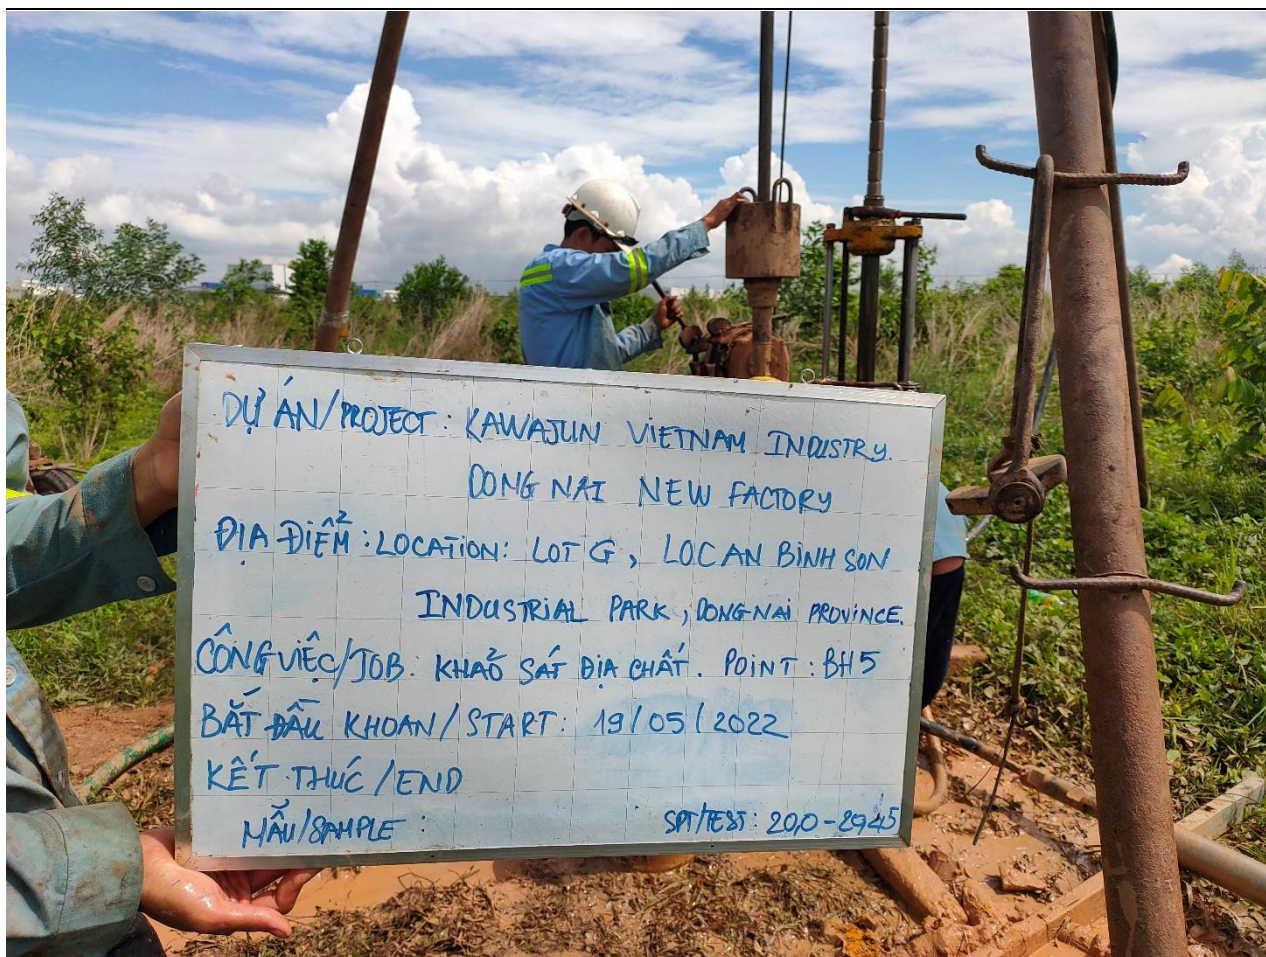 DỰ ÁN/PROJECT: KAWAJUN VIETNAM INDUSTRY.
DONG NAI NEW FACTORY
ĐỊA ĐIỂM: LOCATION: LOT G, LOC AN BINH SON
INDUSTRIAL PARK, DONG NAI PROVINCE.
CÔNG VIỆC/JOB: KHẢO SÁT ĐỊA CHẤT. POINT: BH5
BẮT ĐẦU KHOAN/START: 19/05/2022
KẾT THÚC/END
MẪU/SAMPLE: SPT/TEST: